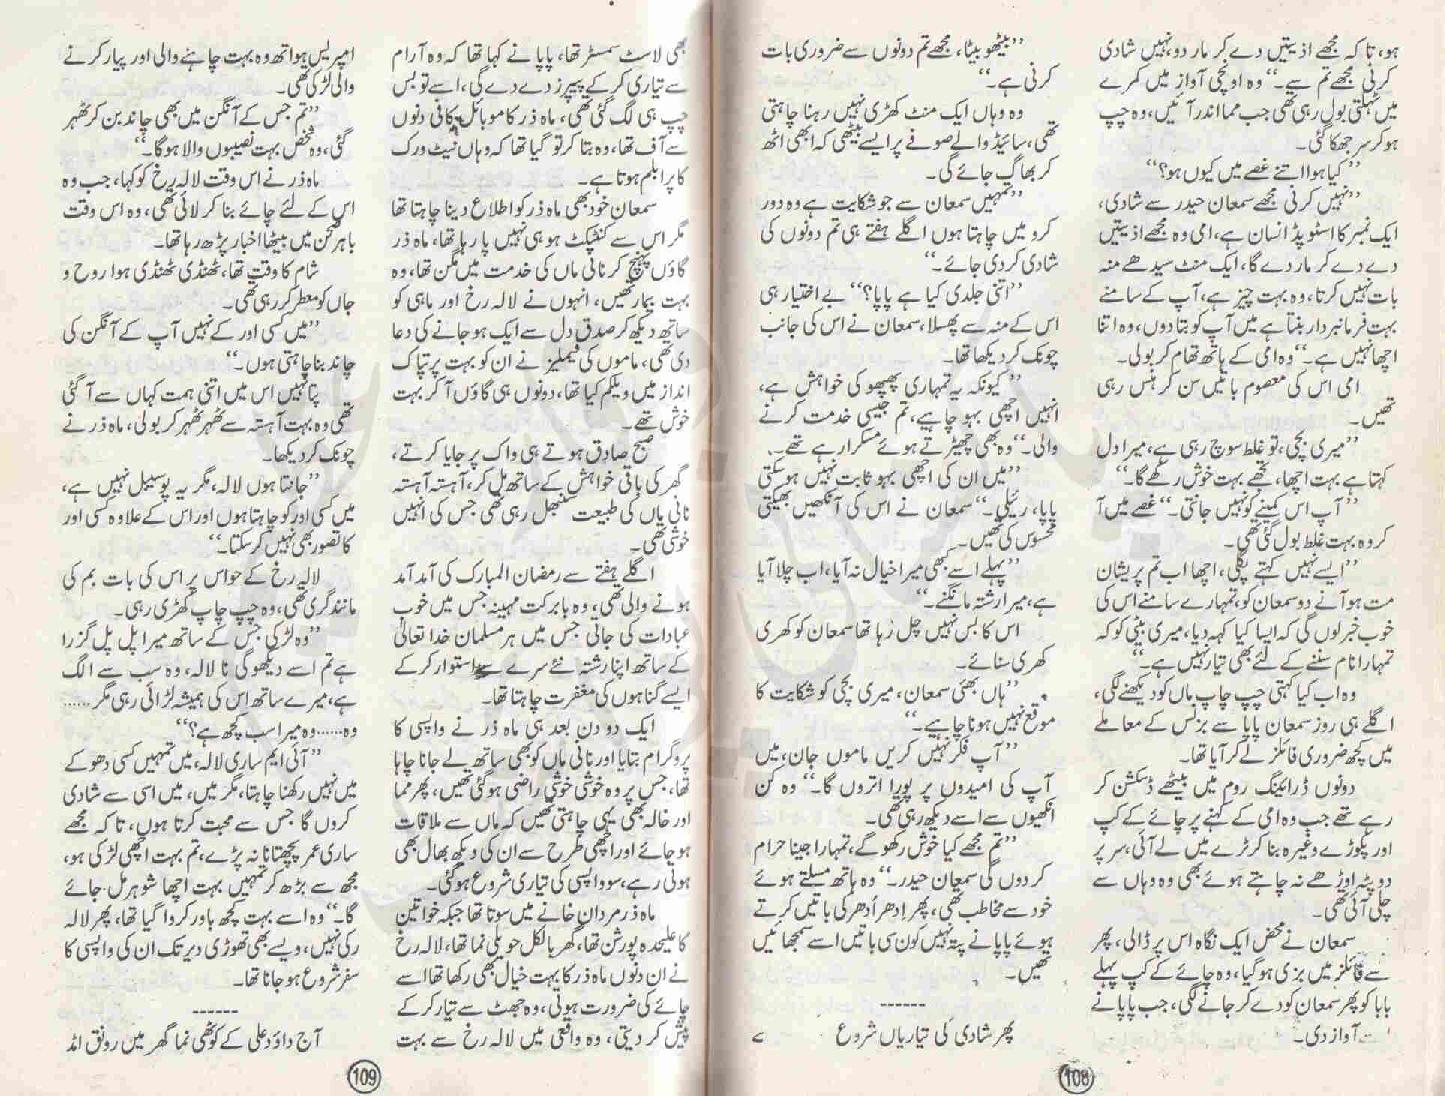 ہو، تا کہ مجھے اذیتیں دے کر مار دو، نہیں شادی
کرنی مجھے تم سے۔“ وہ اونچی آواز میں کمرے
میں ٹہلتی بول رہی تھی جب مما اندر آئیں، وہ چپ
ہو کر سر جھکا گئی۔
”کیا ہوا اتنے غصے میں کیوں ہو؟“
”نہیں کرنی مجھے سمعان حیدر سے شادی،
ایک نمبر کا اسٹوپڈ انسان ہے، امی وہ مجھے اذیتیں
دے دے کر مار دے گا، ایک منٹ سیدھے منہ
بات نہیں کرتا، وہ بہت چیز ہے، آپ کے سامنے
بہت فرمانبردار بنتا ہے میں آپ کو بتا دوں، وہ اتنا
اچھا نہیں ہے۔“ وہ امی کے ہاتھ تھام کر بولی۔
امی اس کی معصوم باتیں سن کر ہنس رہی
تھیں۔
”میری بچی، تو غلط سوچ رہی ہے، میرا دل
کہتا ہے بہت اچھا، تجھے بہت خوش رکھے گا۔“
”آپ اس کمینے کو نہیں جانتی۔“ غصے میں آ
کر وہ بہت غلط بول گئی تھی۔
”ایسے نہیں کہتے پگلی، اچھا اب تم پریشان
مت ہو آنے دو سمعان کو، تمہارے سامنے اس کی
خوب خبر لوں گی کہ ایسا کیا کہہ دیا، میری بیٹی کو کہ
تمہارا نام سننے کے لئے بھی تیار نہیں ہے۔“
وہ اب کیا کہتی چپ چاپ ماں کو دیکھنے لگی،
اگلے ہی روز سمعان پاپا سے بزنس کے معاملے
میں کچھ ضروری فائلز لے کر آیا تھا۔
دونوں ڈرائینگ روم میں بیٹھے ڈسکشن کر
رہے تھے جب وہ امی کے کہنے پر چائے کے کپ
اور پکوڑے وغیرہ بنا کر ٹرے میں لے آئی، سر پر
دوپٹہ اوڑھے نہ چاہتے ہوئے بھی وہ وہاں سے
چلی آئی تھی۔
سمعان نے محض ایک نگاہ اس پر ڈالی، پھر
سے فائلز میں بزی ہو گیا، وہ چائے کے کپ پہلے
بابا کو پھر سمعان کو دے کر جانے لگی، جب پاپا نے
آواز دی۔
”بیٹھو بیٹا، مجھے تم دونوں سے ضروری بات
کرنی ہے۔“
وہ وہاں ایک منٹ کھڑی نہیں رہنا چاہتی
تھی، سائیڈ والے صوفے پر ایسے بیٹھی کہ ابھی اٹھ
کر بھاگ جائے گی۔
”تمہیں سمعان سے جو شکایت ہے وہ دور
کرو میں چاہتا ہوں اگلے ہفتے ہی تم دونوں کی
شادی کر دی جائے۔“
”اتنی جلدی کیا ہے پاپا؟“ بے اختیار ہی
اس کے منہ سے پھسلا، سمعان نے اس کی جانب
چونک کر دیکھا تھا۔
”کیونکہ یہ تمہاری پھپھو کی خواہش ہے،
انہیں اچھی بہو چاہیے، تم جیسی خدمت کرنے
والی۔“ وہ بھی چھیڑتے ہوئے مسکرا رہے تھے۔
”میں ان کی اچھی بہو ثابت نہیں ہو سکتی
پاپا، رئیلی۔“ سمعان نے اس کی آنکھیں بھیگتی
محسوس کی تھیں۔
”پہلے اسے بھی میرا خیال نہ آیا، اب چلا آیا
ہے، میرا رشتہ مانگنے۔“
اس کا بس نہیں چل رہا تھا سمعان کو کھری
کھری سنائے۔
”ہاں بھئی سمعان، میری بچی کو شکایت کا
موقع نہیں ہونا چاہیے۔“
”آپ فکر نہیں کریں ماموں جان، میں
آپ کی امیدوں پر پورا اتروں گا۔“ وہ کن
انکھیوں سے اسے دیکھ رہی تھی۔
”تم مجھے کیا خوش رکھو گے، تمہارا جینا حرام
کر دوں گی سمعان حیدر۔“ وہ ہاتھ مسلتے ہوئے
خود سے مخاطب تھی، پھر اِدھر اُدھر کی باتیں کرتے
ہوئے پاپا نے پتہ نہیں کون سی باتیں اسے سمجھائیں
تھیں۔
------
پھر شادی کی تیاریاں شروع
108
بھی لاسٹ سمسٹر تھا، پاپا نے کہا تھا کہ وہ آرام
سے تیاری کر کے پیپرز دے دے گی، اسے تو بس
چپ ہی لگ گئی تھی، ماہ ذر کا موبائل کافی دنوں
سے آف تھا، وہ بتا کر تو گیا تھا کہ وہاں نیٹ ورک
کا پرابلم ہوتا ہے۔
سمعان خود بھی ماہ ذر کو اطلاع دینا چاہتا تھا
مگر اس سے کنٹیکٹ ہو ہی نہیں پا رہا تھا، ماہ ذر
گاؤں پہنچ کر نانی ماں کی خدمت میں مگن تھا، وہ
بہت بیمار تھیں، انہوں نے لالہ رخ اور ماہی کو
ساتھ دیکھ کر صدق دل سے ایک ہو جانے کی دعا
دی تھی، ماموں کی فیملیز نے ان کو بہت پرتپاک
انداز میں ویلکم کیا تھا، دونوں ہی گاؤں آ کر بہت
خوش تھے۔
صبح صادق ہوتے ہی واک پر جایا کرتے،
گھر کی باقی خواہش کے ساتھ مل کر، آہستہ آہستہ
نانی ماں کی طبیعت سنبھل رہی تھی جس کی انہیں
خوشی تھی۔
اگلے ہفتے سے رمضان المبارک کی آمد آمد
ہونے والی تھی، وہ بابرکت مہینہ جس میں خوب
عبادات کی جاتی جس میں ہر مسلمان خدا تعالیٰ
کے ساتھ اپنا رشتہ نئے سرے سے استوار کر کے
اپنے گناہوں کی مغفرت چاہتا تھا۔
ایک دو دن بعد ہی ماہ ذر نے واپسی کا
پروگرام بتایا اور نانی ماں کو بھی ساتھ لے جانا چاہا
تھا، جس پر وہ خوشی خوشی راضی ہو گئی تھیں، پھر مما
اور خالہ بھی یہی چاہتی تھیں کہ ماں سے ملاقات
ہو جائے اور اچھی طرح سے ان کی دیکھ بھال بھی
ہوتی رہے، سو واپسی کی تیاری شروع ہو گئی۔
ماہ ذر مردان خانے میں سوتا تھا جبکہ خواتین
کا علیحدہ پورشن تھا، گھر بالکل حویلی نما تھا، لالہ رخ
نے ان دنوں ماہ ذر کا بہت خیال بھی رکھا تھا اسے
چائے کی ضرورت ہوتی، وہ جھٹ سے تیار کر کے
پیش کر دیتی، وہ واقعی میں لالہ رخ سے بہت
امپریس ہوا تھا وہ بہت چاہنے والی اور پیار کرنے
والی لڑکی تھی۔
”تم جس کے آنگن میں بھی چاند بن کر ٹھہر
گئی، وہ شخص بہت نصیبوں والا ہو گا۔“
ماہ ذر نے اس وقت لالہ رخ کو کہا، جب وہ
اس کے لئے چائے بنا کر لائی تھی، وہ اس وقت
باہر صحن میں بیٹھا اخبار پڑھ رہا تھا۔
شام کا وقت تھا، ٹھنڈی ٹھنڈی ہوا روح و
جاں کو معطر کر رہی تھی۔
”میں کسی اور کے نہیں آپ کے آنگن کی
چاند بننا چاہتی ہوں۔“
پتا نہیں اس میں اتنی ہمت کہاں سے آ گئی
تھی وہ بہت آہستہ سے ٹھہر ٹھہر کر بولی، ماہ ذر نے
چونک کر دیکھا۔
”جانتا ہوں لالہ، مگر یہ پوسیبل نہیں ہے،
میں کسی اور کو چاہتا ہوں اور اس کے علاوہ کسی اور
کا تصور بھی نہیں کر سکتا۔“
لالہ رخ کے حواس پر اس کی بات بم کی
مانند گری تھی، وہ چپ چاپ کھڑی رہی۔
”وہ لڑکی جس کے ساتھ میرا پل پل گزرا
ہے تم اسے دیکھو گی نا لالہ، وہ سب سے الگ
ہے، میرے ساتھ اس کی ہمیشہ لڑائی رہی مگر ......
وہ ...... وہ میرا سب کچھ ہے؟“
”آئی ایم ساری لالہ، میں تمہیں کسی دھوکے
میں نہیں رکھنا چاہتا، مگر میں، میں اسی سے شادی
کروں گا جس سے محبت کرتا ہوں، تا کہ مجھے
ساری عمر پچھتانا نہ پڑے، تم بہت اچھی لڑکی ہو،
مجھ سے بڑھ کر تمہیں بہت اچھا شوہر مل جائے
گا۔“ وہ اسے بہت کچھ باور کروا گیا تھا، پھر لالہ
رکی نہیں، ویسے بھی تھوڑی دیر تک ان کی واپسی کا
سفر شروع ہو جانا تھا۔
------
آج داؤد علی کے کوٹھی نما گھر میں رونق امڈ
109